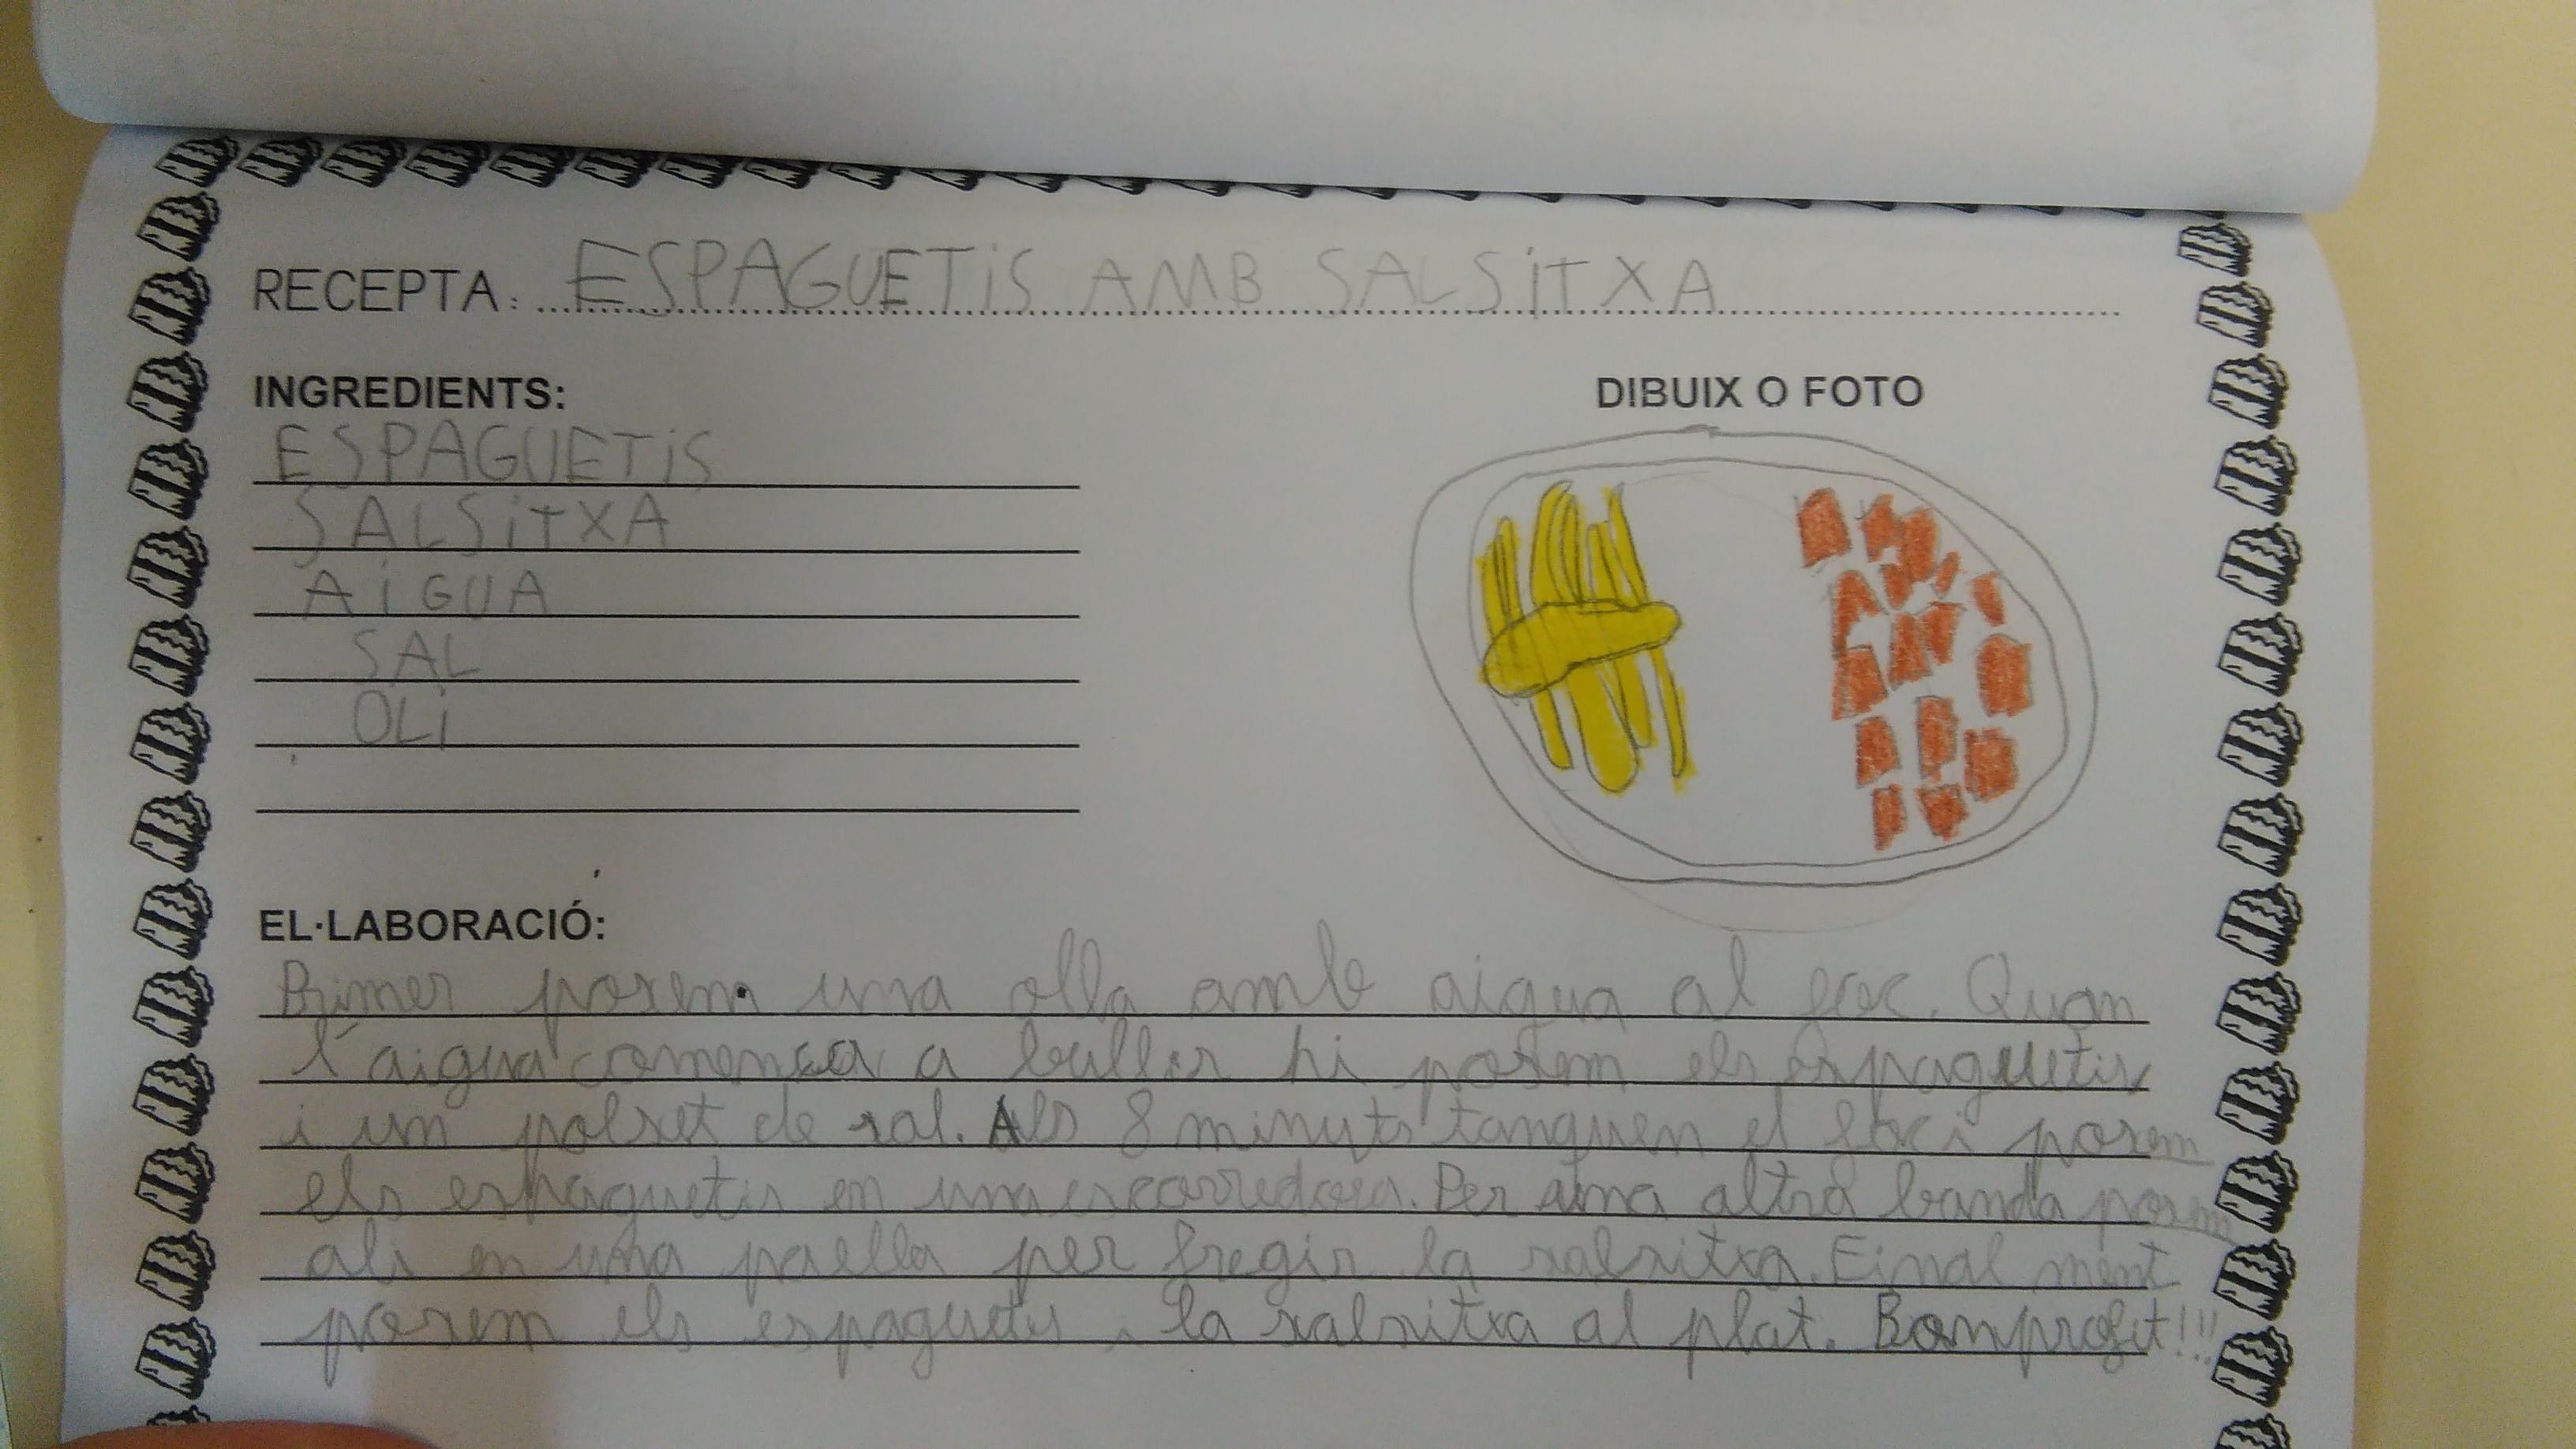 RECEPTA: ESPAGUETiS AMB SALSiTXA
INGREDIENTS:
DIBUIX O FOTO
ESPAGUETiS
SALSiTXA
AiGUA
SAL
OLi
EL·LABORACIÓ:
Primer posem una olla amb aigua al foc. Quan
l'aigua comença a bullir hi posem els espaguetis
i un polset de sal. Als 8 minuts tanquen el foc i posem
els espaguetis en una escorredora. Per una altra banda posem
oli en una paella per fregir la salsitxa. Final ment
posem els espaguetis i la salsitxa al plat. Bon profit!!!